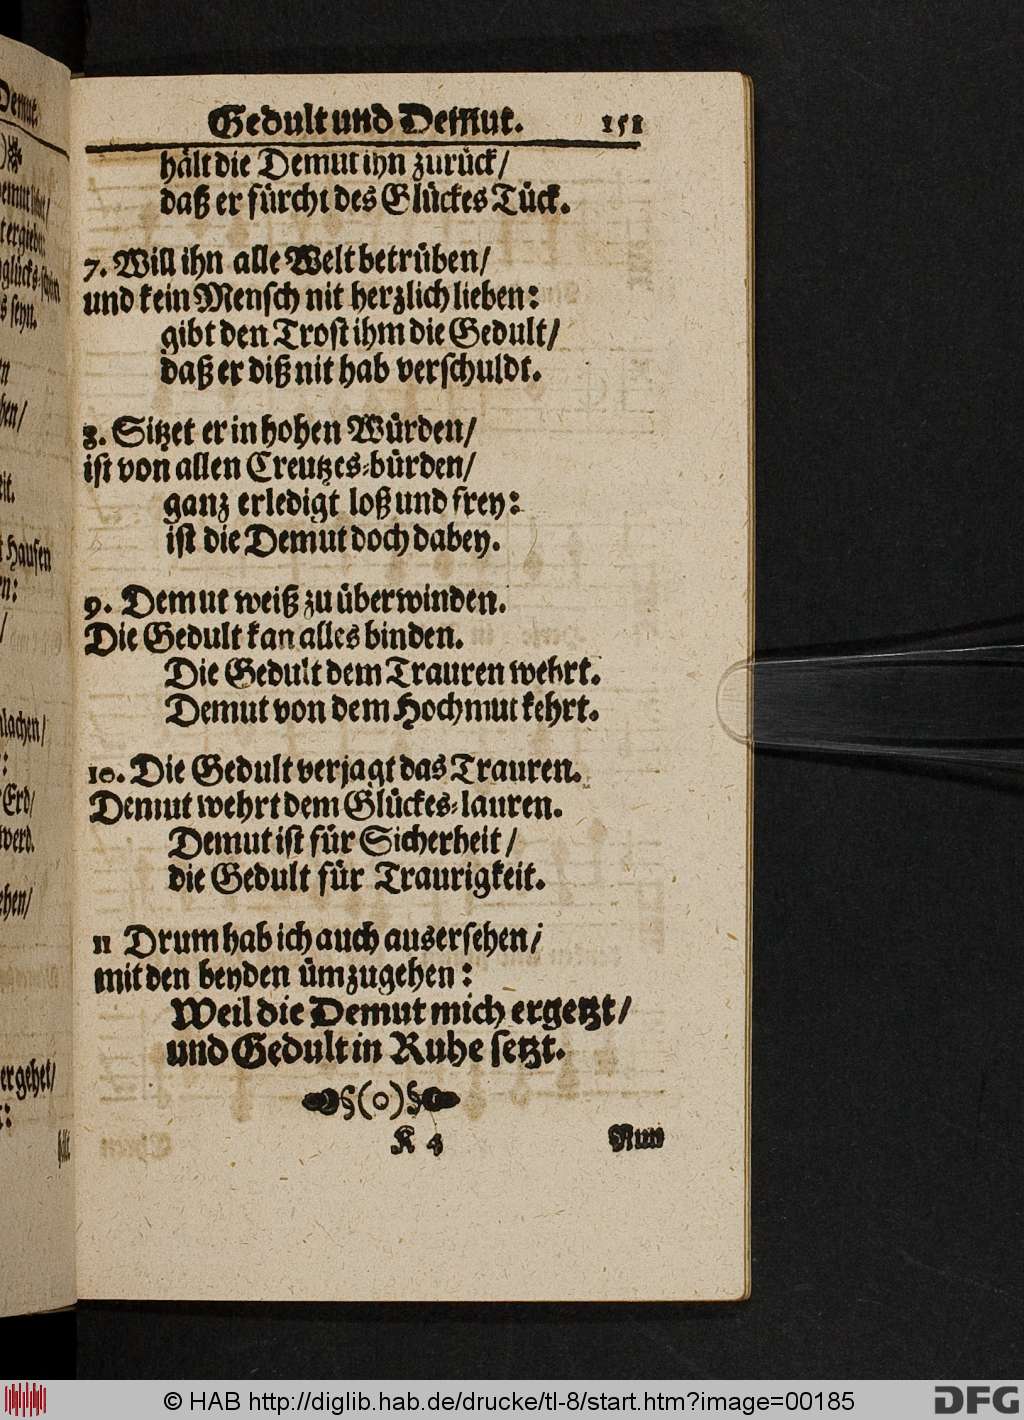 Gedult und Demut. 151
hält die Demut ihn zurück/
daß er fürcht des Glückes Tück.
7. Will ihn alle Welt betrüben/
und kein Mensch nit herzlich lieben:
gibt den Trost ihm die Gedult/
daß er diß nit hab verschuldt.
8. Sitzet er in hohen Würden/
ist von allen Creutzes-bürden/
ganz erledigt loß und frey:
ist die Demut doch dabey.
9. Demut weiß zu überwinden.
Die Gedult kan alles binden.
Die Gedult dem Trauren wehrt.
Demut von dem Hochmut kehrt.
10. Die Gedult verjagt das Trauren.
Demut wehrt dem Glückes-lauren.
Demut ist für Sicherheit/
die Gedult für Traurigkeit.
11 Drum hab ich auch ausersehen/
mit den beyden ümzugehen:
Weil die Demut mich ergetzt/
und Gedult in Ruhe setzt.
§(o)§
K 4 Nun
Demut.
Hausen
lachen/
Erd/
werd.
ergehet/
hält
© HAB http://diglib.hab.de/drucke/tl-8/start.htm?image=00185
DFG